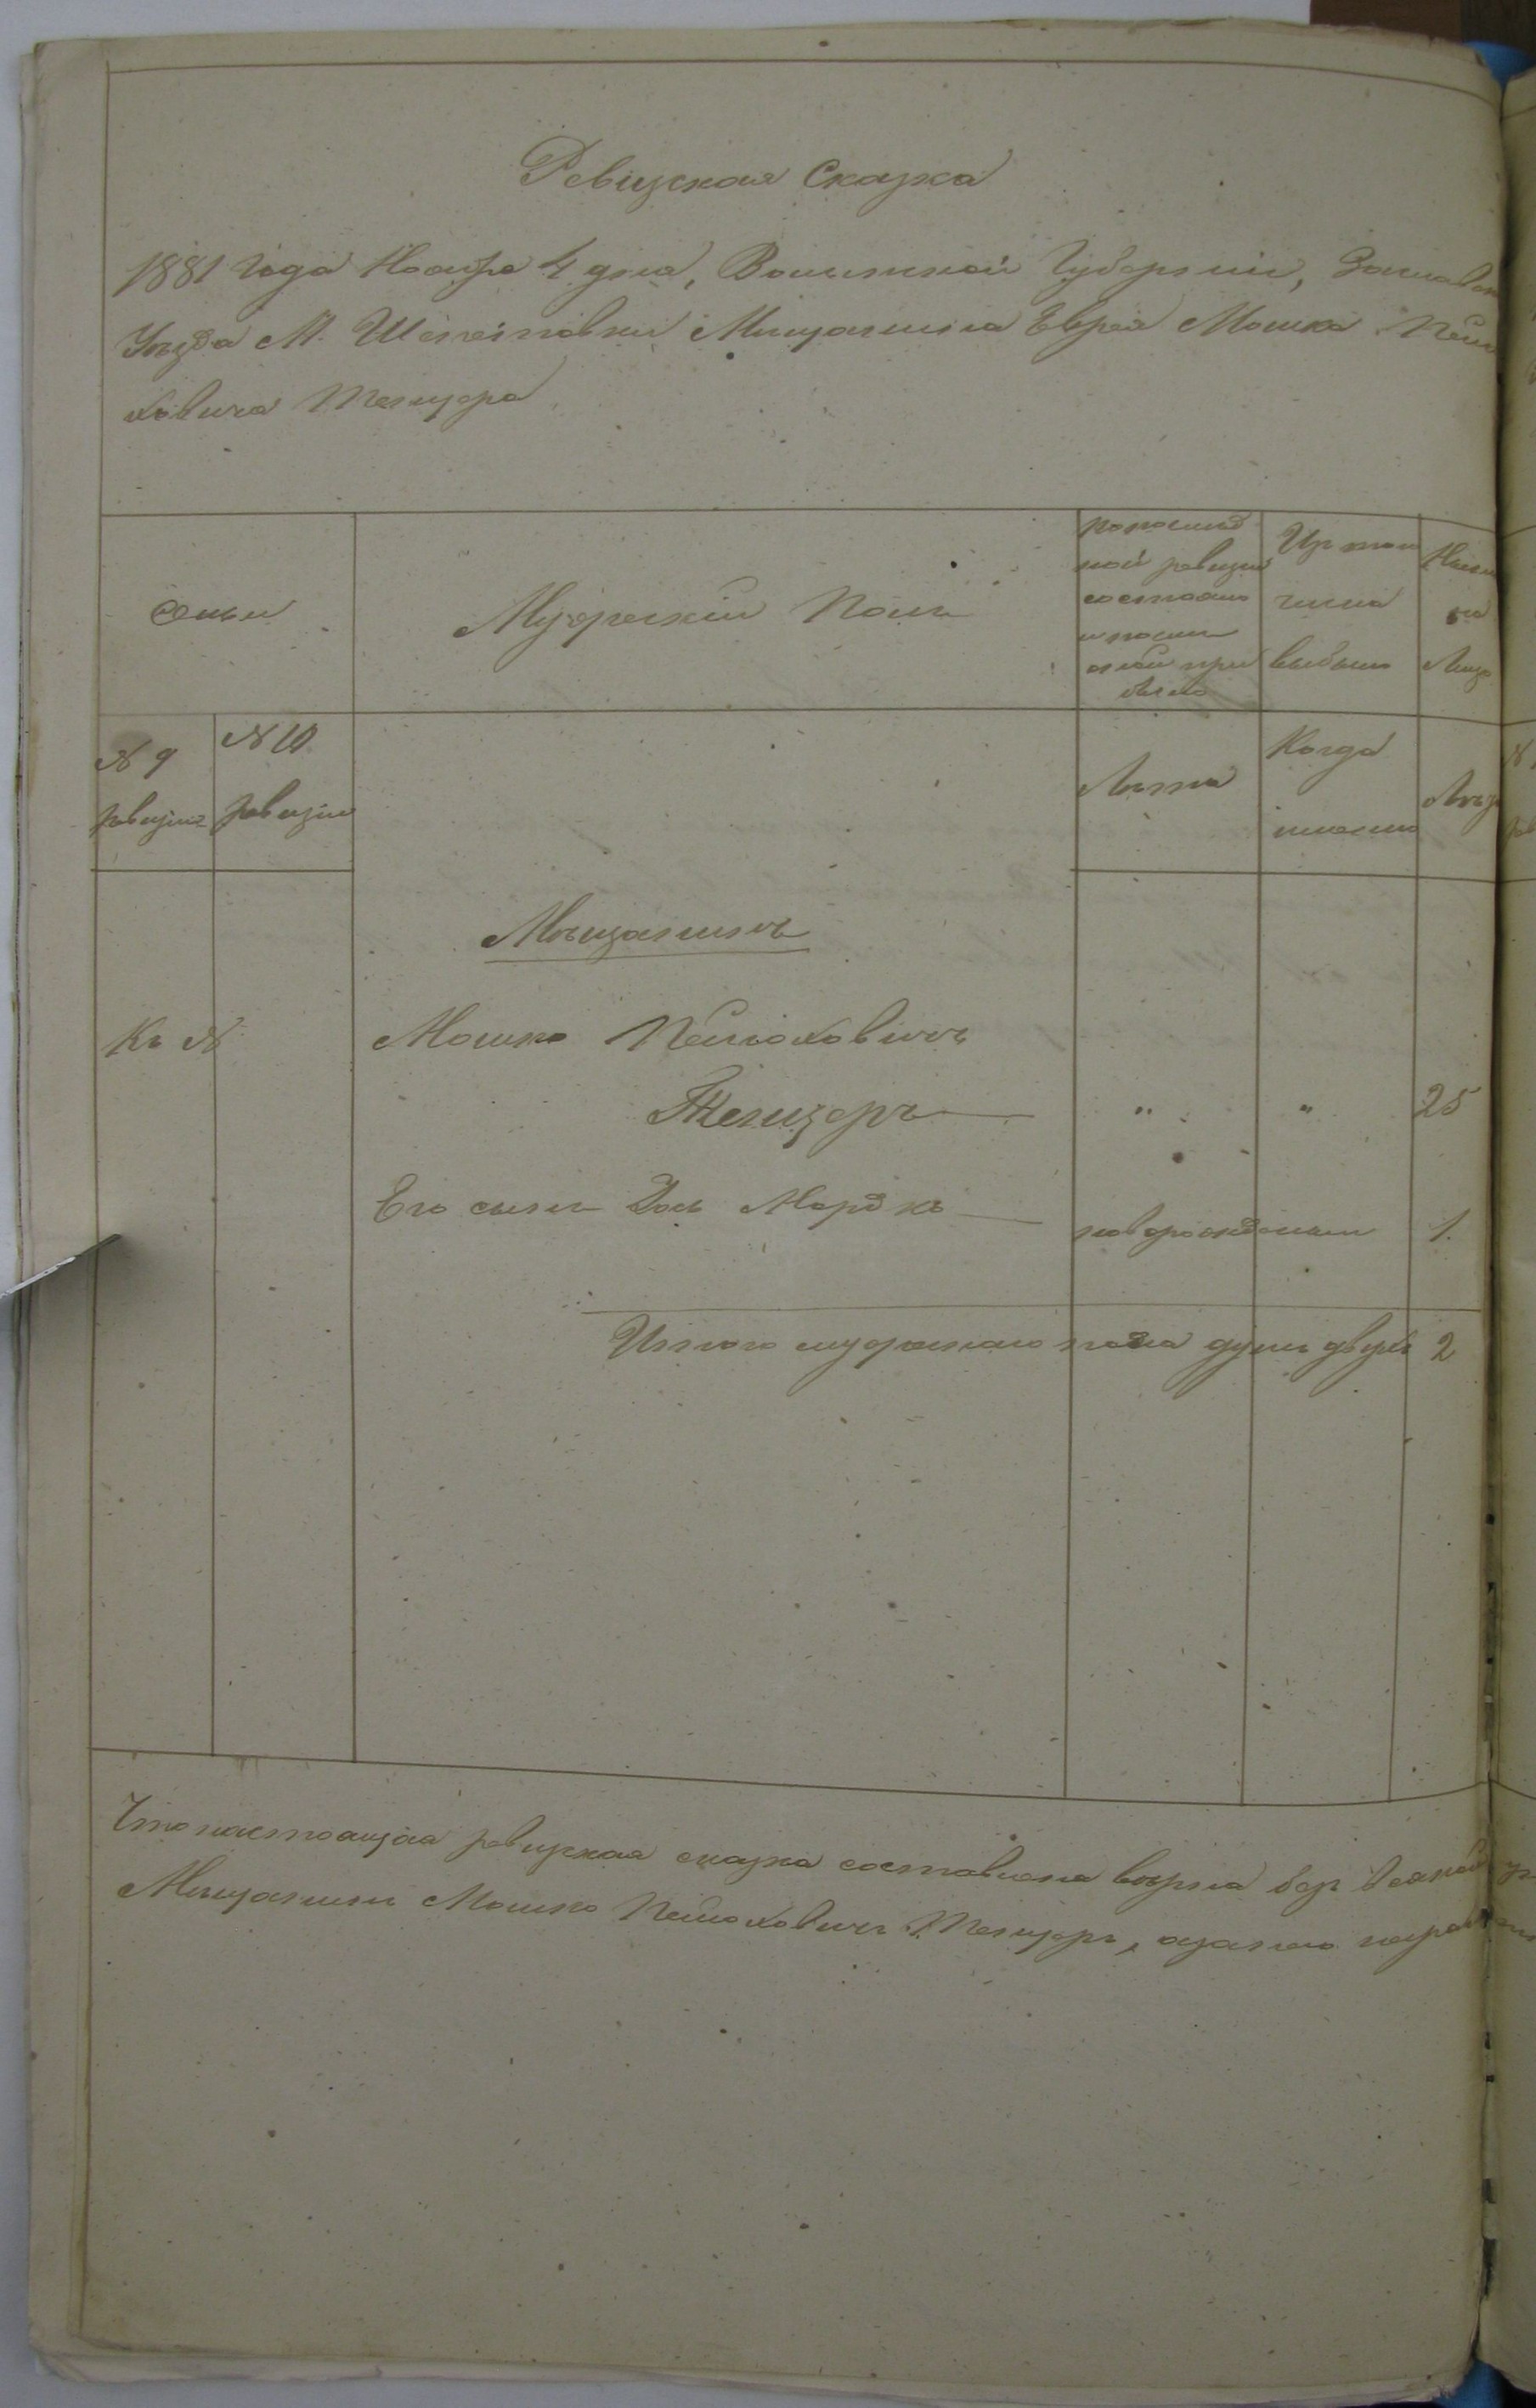 Ревизская Сказка
1881 года Ноября 4 дня, Волынской Губернiи, Заславск
Уѣзда М. Шепетовки Мищанина Еврея Мошка Пей
ховича Тенцера
Семьи
Мужескiй Полъ
По послѣд
ней ревизiи
состояло
и послѣ
оной при
было
Изъ того
числа
выбыло
Нынѣ
на
Лицо
№ 9
ревизiи
№ 10
ревизiи
Лѣта
Когда
именно
Лѣта
Мѣщанинъ
Къ №
Мошко Пейсаховичъ
Тенцеръ
" " 25
Его сынъ Мордко
новорожденный 1.
Итого мужескаго пола душъ двухъ 2
Что настоящая ревизкая сказка составлена вѣрно безъ всякой
Мѣщанинъ Мошко Пейсаховичъ Тенцеръ, а за него неграм